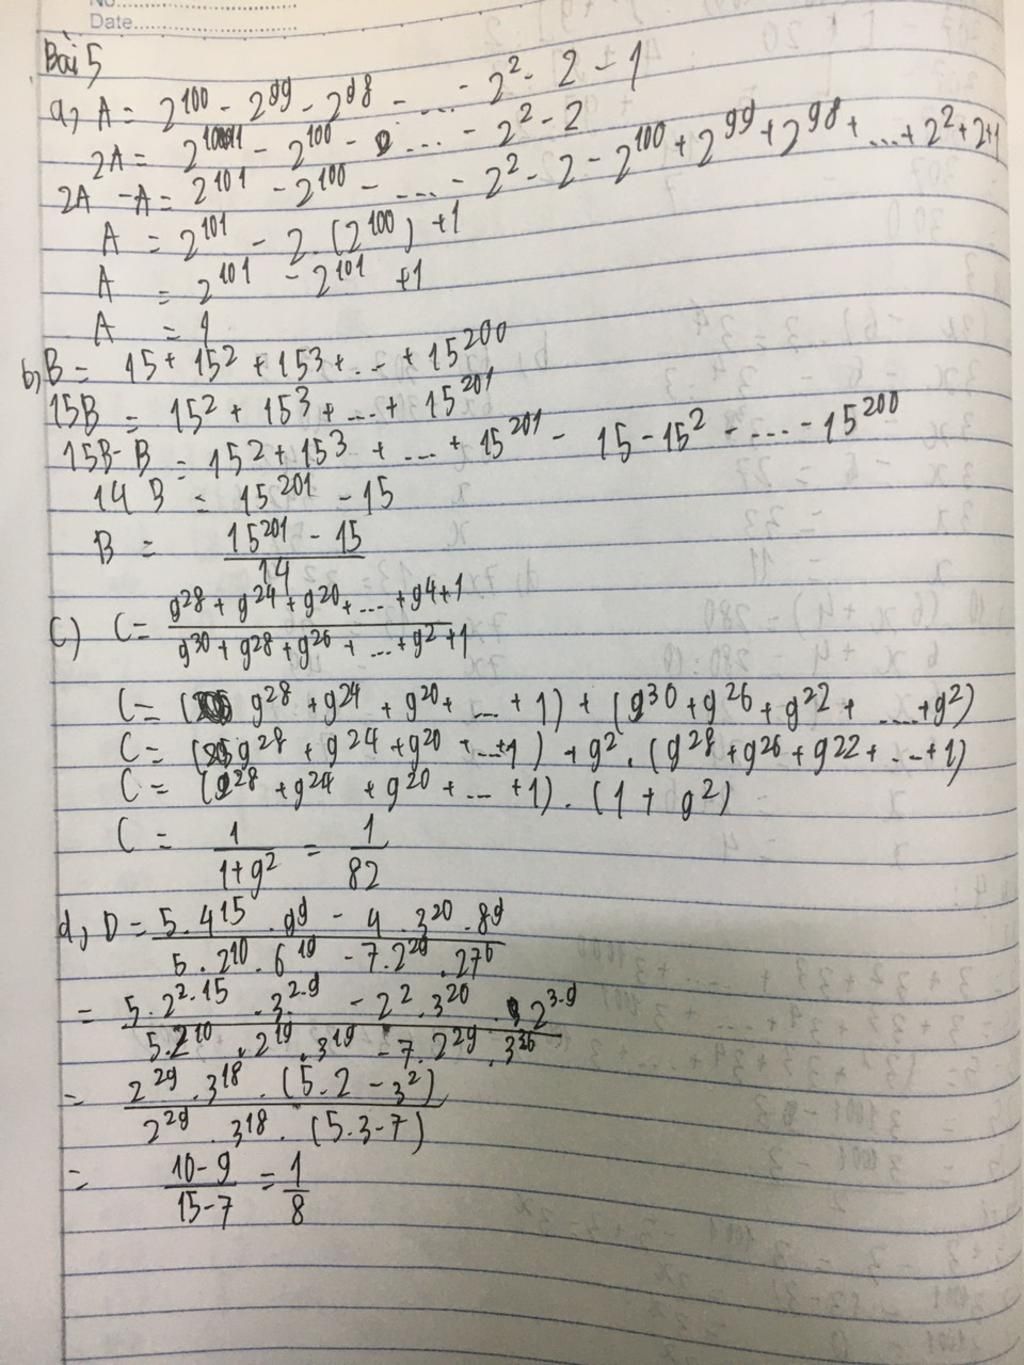 No.
Date
Bài 5
a, A = 2^100 - 2^99 - 2^98 - ... - 2^2 - 2 - 1
2A = 2^101 - 2^100 - ... - 2^2 - 2
2A - A = 2^101 - 2^100 - ... - 2^2 - 2 - 2^100 + 2^99 + 2^98 + ... + 2^2 + 2 + 1
A = 2^101 - 2.(2^100) + 1
A = 2^101 - 2^101 + 1
A = 1
b, B = 15 + 15^2 + 15^3 + ... + 15^200
15B = 15^2 + 15^3 + ... + 15^201
15B - B = 15^2 + 15^3 + ... + 15^201 - 15 - 15^2 - ... - 15^200
14 B = 15^201 - 15
B = (15^201 - 15)/14
C) C = (9^28 + 9^24 + 9^20 + ... + 9^4 + 1)/(9^30 + 9^28 + 9^26 + ... + 9^2 + 1)
C = (9^28 + 9^24 + 9^20 + ... + 1) + (9^30 + 9^26 + 9^22 + ... + 9^2)
C = (9^28 + 9^24 + 9^20 + ... + 1) + 9^2 . (9^28 + 9^26 + 9^22 + ... + 1)
C = (9^28 + 9^24 + 9^20 + ... + 1) . (1 + 9^2)
C = 1/(1 + 9^2) = 1/82
d, D = (5.4^15 . 9^9 - 4 . 3^20 . 8^9)/(5 . 2^10 . 6^19 - 7.2^29 . 27^6)
= (5.2^2.15 . 3^2.9 - 2^2 . 3^20 . 2^3.9)/(5.2^10 . 2^19 . 3^19 - 7.2^29 . 3^36)
= (2^29 . 3^18 . (5.2 - 3^2))/(2^29 . 3^18 . (5.3 - 7))
= (10 - 9)/(15 - 7) = 1/8